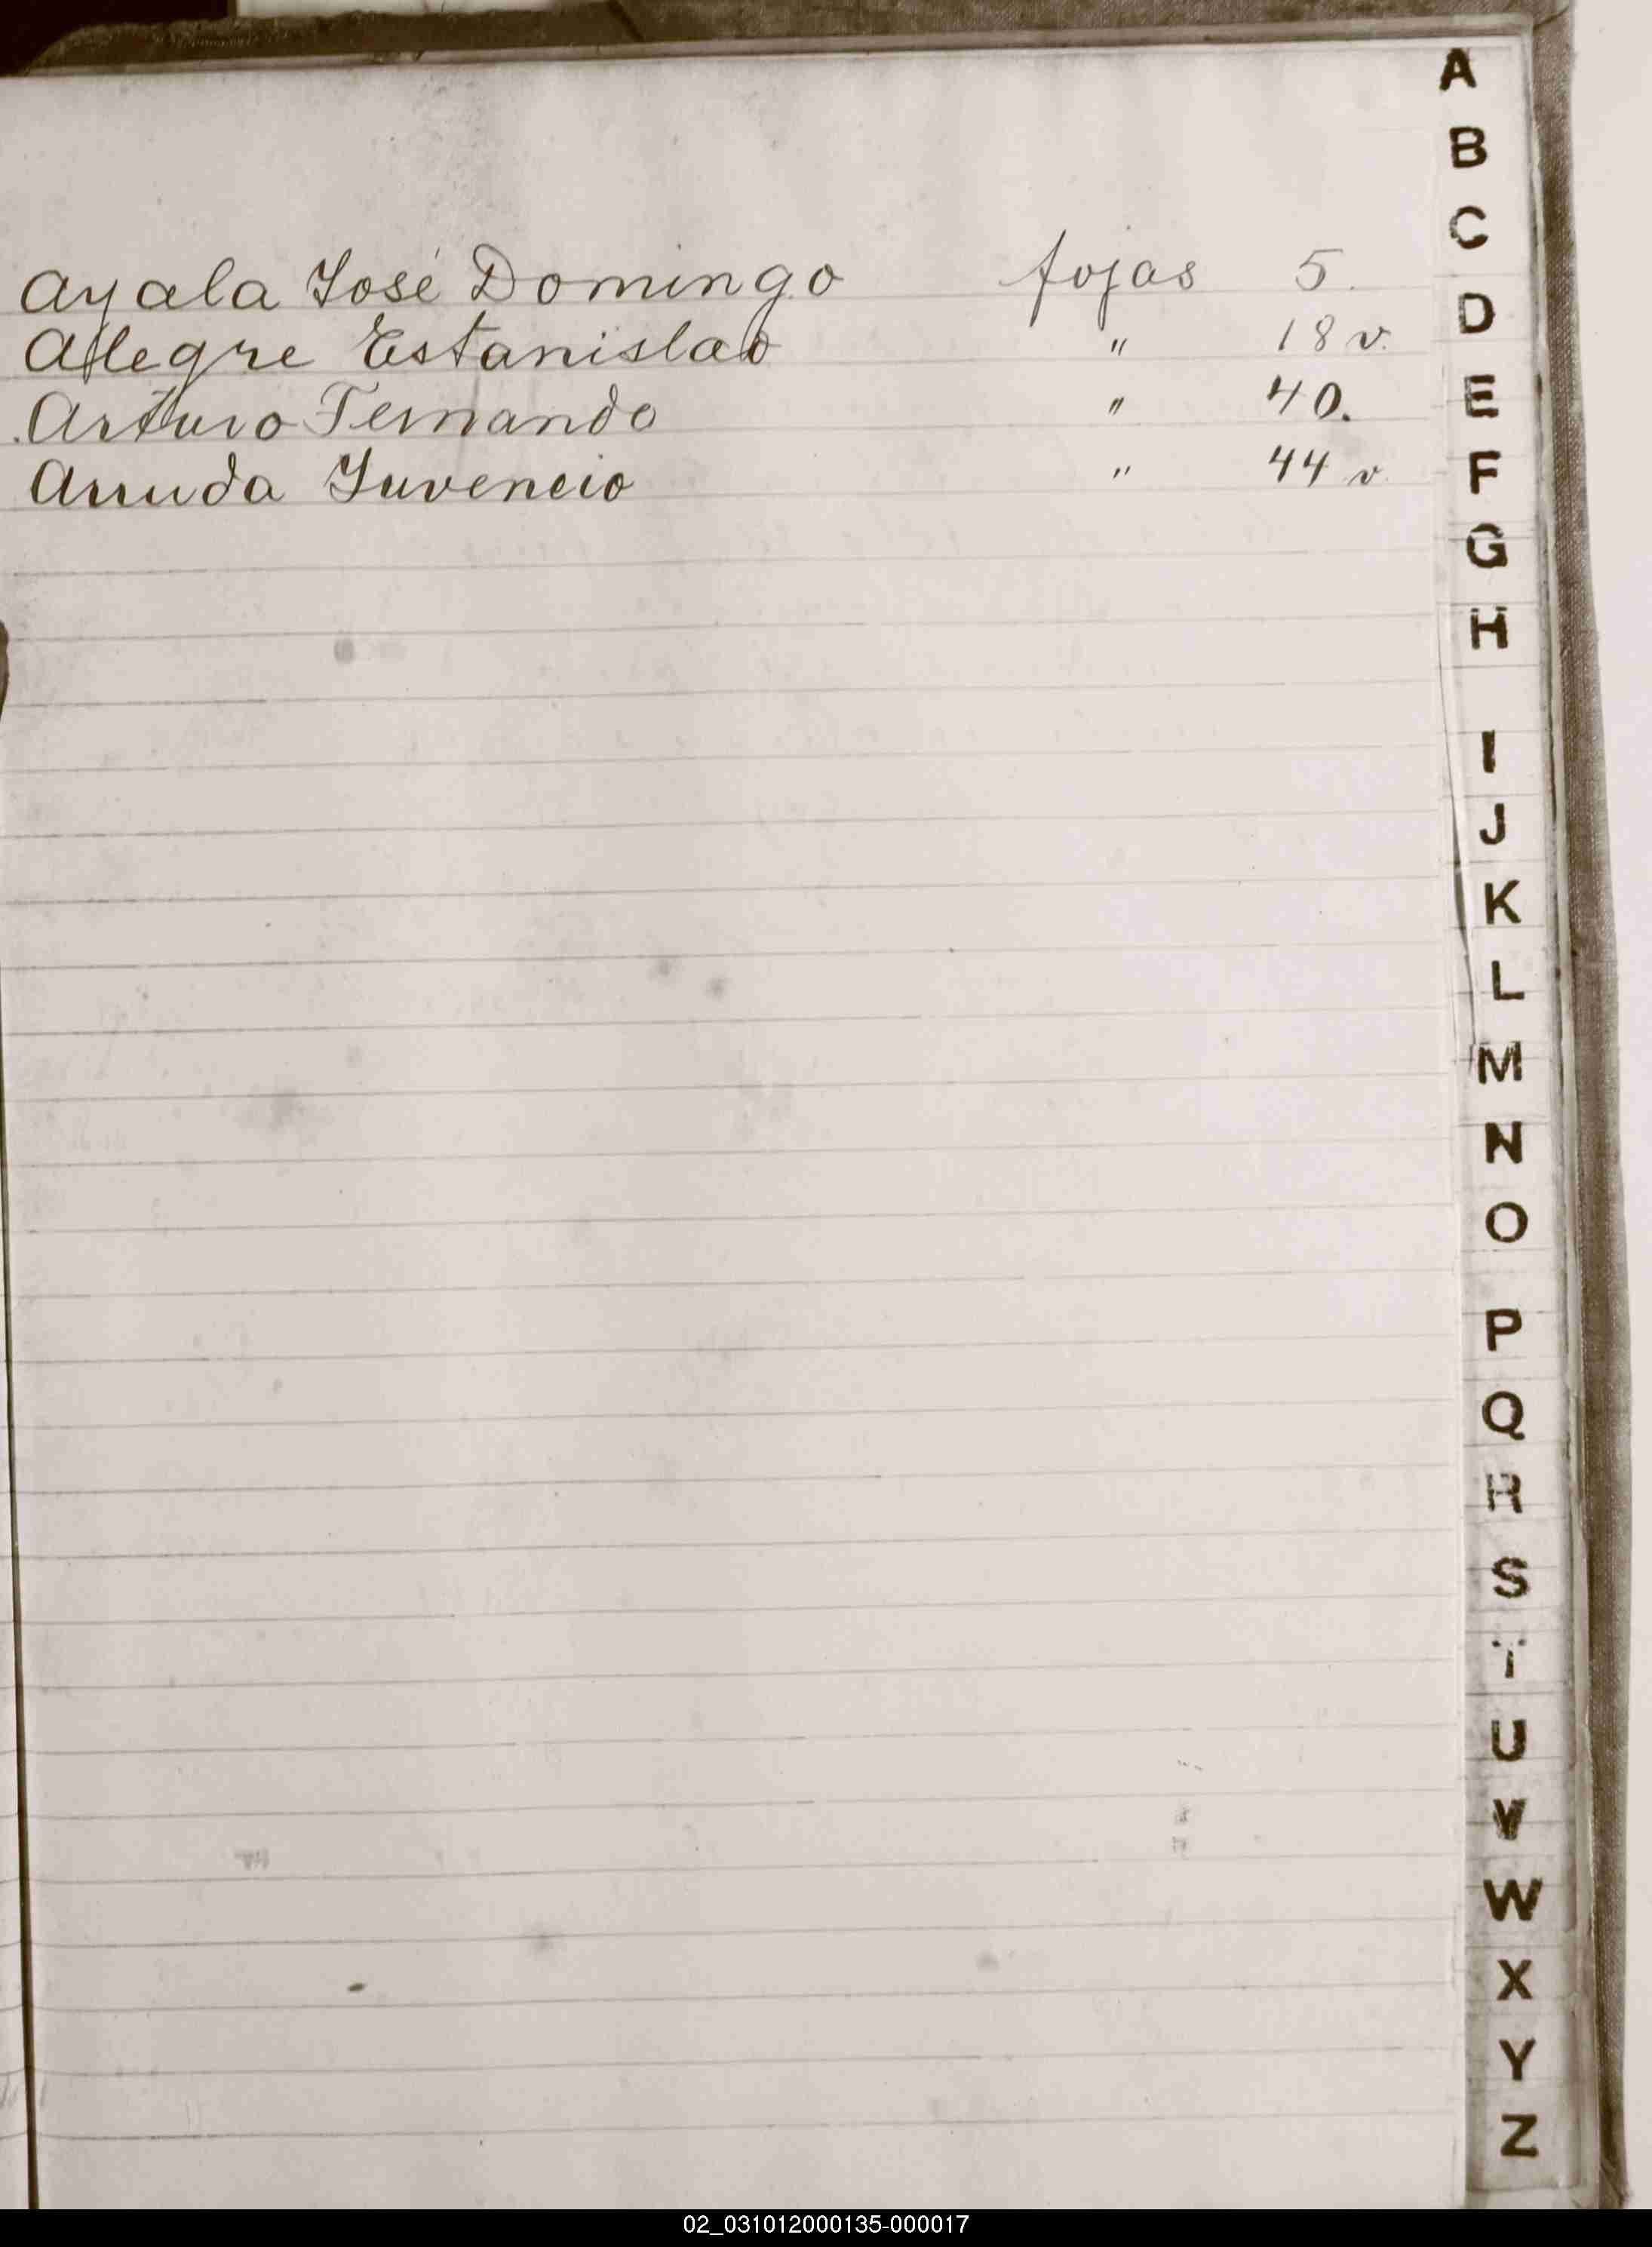 Ayala José Domingo fojas 5.
Alegre Estanislao " 18 v.
Arturo Fernando " 40.
Arruda Juvencio " 44 v.
A
B
C
D
E
F
G
H
I
J
K
L
M
N
O
P
Q
R
S
T
U
V
W
X
Y
Z
02_031012000135-000017